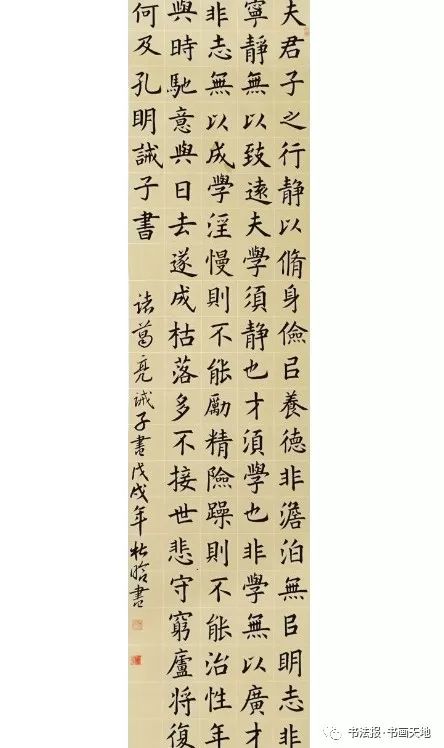 夫君子之行静以脩身儉㠯養德非澹泊無㠯明志非
寧静無以致遠夫學須静也才須學也非學無以廣才
非志無以成學淫慢則不能勵精險躁則不能治性年
與時馳意與日去遂成枯落多不接世悲守窮廬將復
何及孔明誡子書
诸葛亮诫子書戊戌年杜晗書
书法报·书画天地